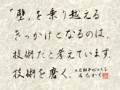 『壁』を乗り越える
きっかけとなるのは、
技術だと考えています。
技術を磨く。